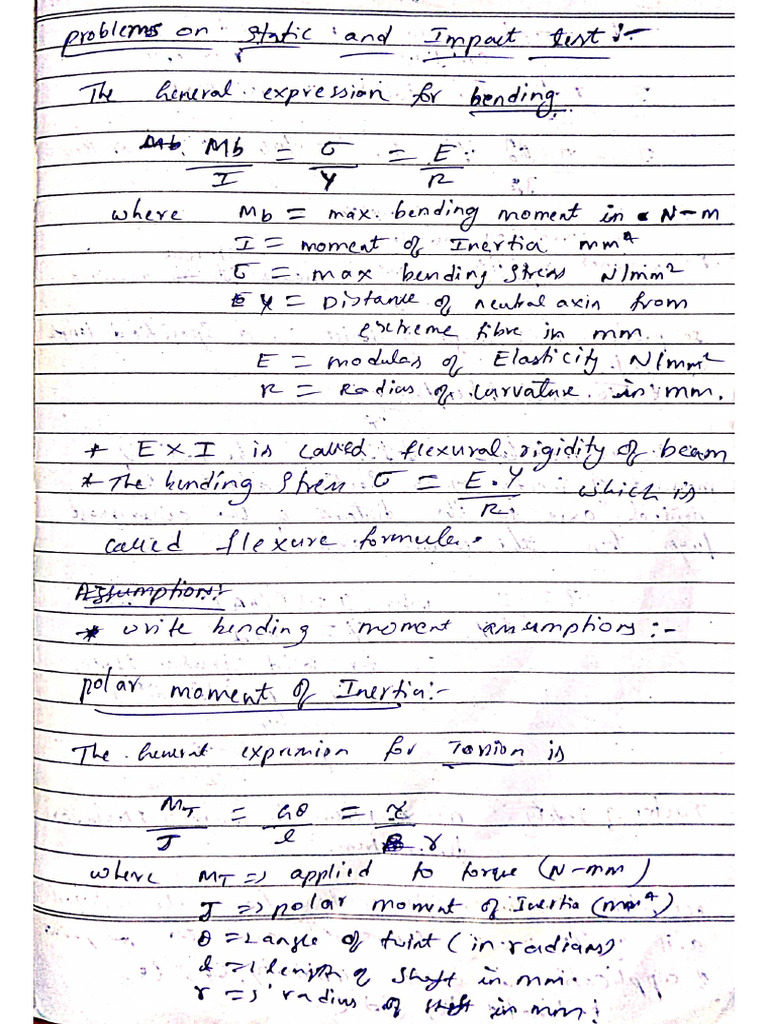 problems on static and Impact test :-
The General expression for bending.
Mb Mb/I = σ/Y = E/R
where Mb = max. bending moment in N-m
I = moment of Inertia mm⁴
σ = max bending stress N/mm²
Y = Distance of neutral axis from
extreme fibre in mm.
E = modulas of Elasticity N/mm²
R = Radius of curvature in mm.
* E × I is called flexural rigidity of beam
* The bending stress σ = E.Y/R. which is
called flexure formula.
Assumption:
* write bending moment assumptions :-
polar moment of Inertia:-
The General expression for Torsion is
MT/J = Gθ/l = τ/r
where MT => applied to torque (N-mm)
J => polar moment of Inertia (mm⁴)
θ => angle of twist (in radians)
l => length of shaft in mm.
r => radius of shaft in mm.